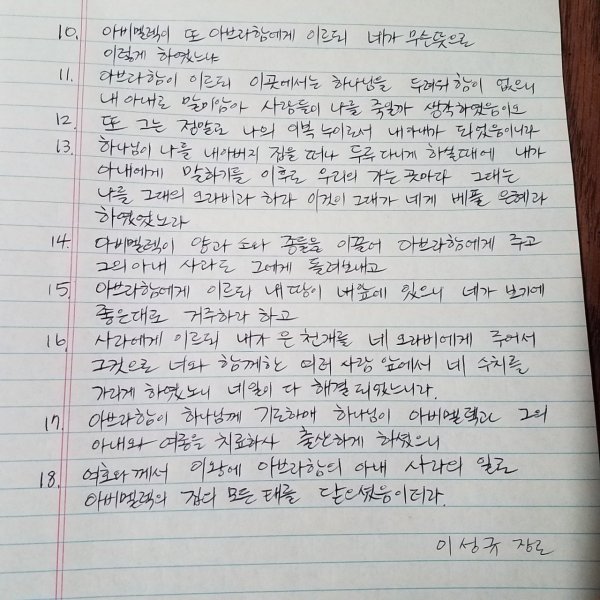 10. 아비멜렉이 또 아브라함에게 이르되 네가 무슨뜻으로
이렇게 하였느냐
11. 아브라함이 이르되 이곳에서는 하나님을 두려워함이 없으니
내 아내로 말미암아 사람들이 나를 죽일까 생각하였음이요
12. 또 그는 정말로 나의 이복 누이로서 내아내가 되었음이니라
13. 하나님이 나를 내아버지 집을 떠나 두루 다니게 하실때에 내가
아내에게 말하기를 이후로 우리의 가는 곳마다 그대는
나를 그대의 오라비라 하라 이것이 그대가 내게 베풀 은혜라
하였었노라
14. 아비멜렉이 양과 소와 종들을 이끌어 아브라함에게 주고
그의 아내 사라도 그에게 돌려보내고
15. 아브라함에게 이르되 내 땅이 네앞에 있으니 네가 보기에
좋은대로 거주하라 하고
16. 사라에게 이르되 내가 은 천개를 네 오라비에게 주어서
그것으로 너와 함께한 여러 사람 앞에서 네 수치를
가리게 하였노니 네일이 다 해결 되었느니라.
17. 아브라함이 하나님께 기도하매 하나님이 아비멜렉과 그의
아내와 여종을 치료하사 출산하게 하셨으니
18. 여호와께서 이왕에 아브라함의 아내 사라의 일로
아비멜렉의 집의 모든 태를 닫으셨음이더라.
이성규 장로